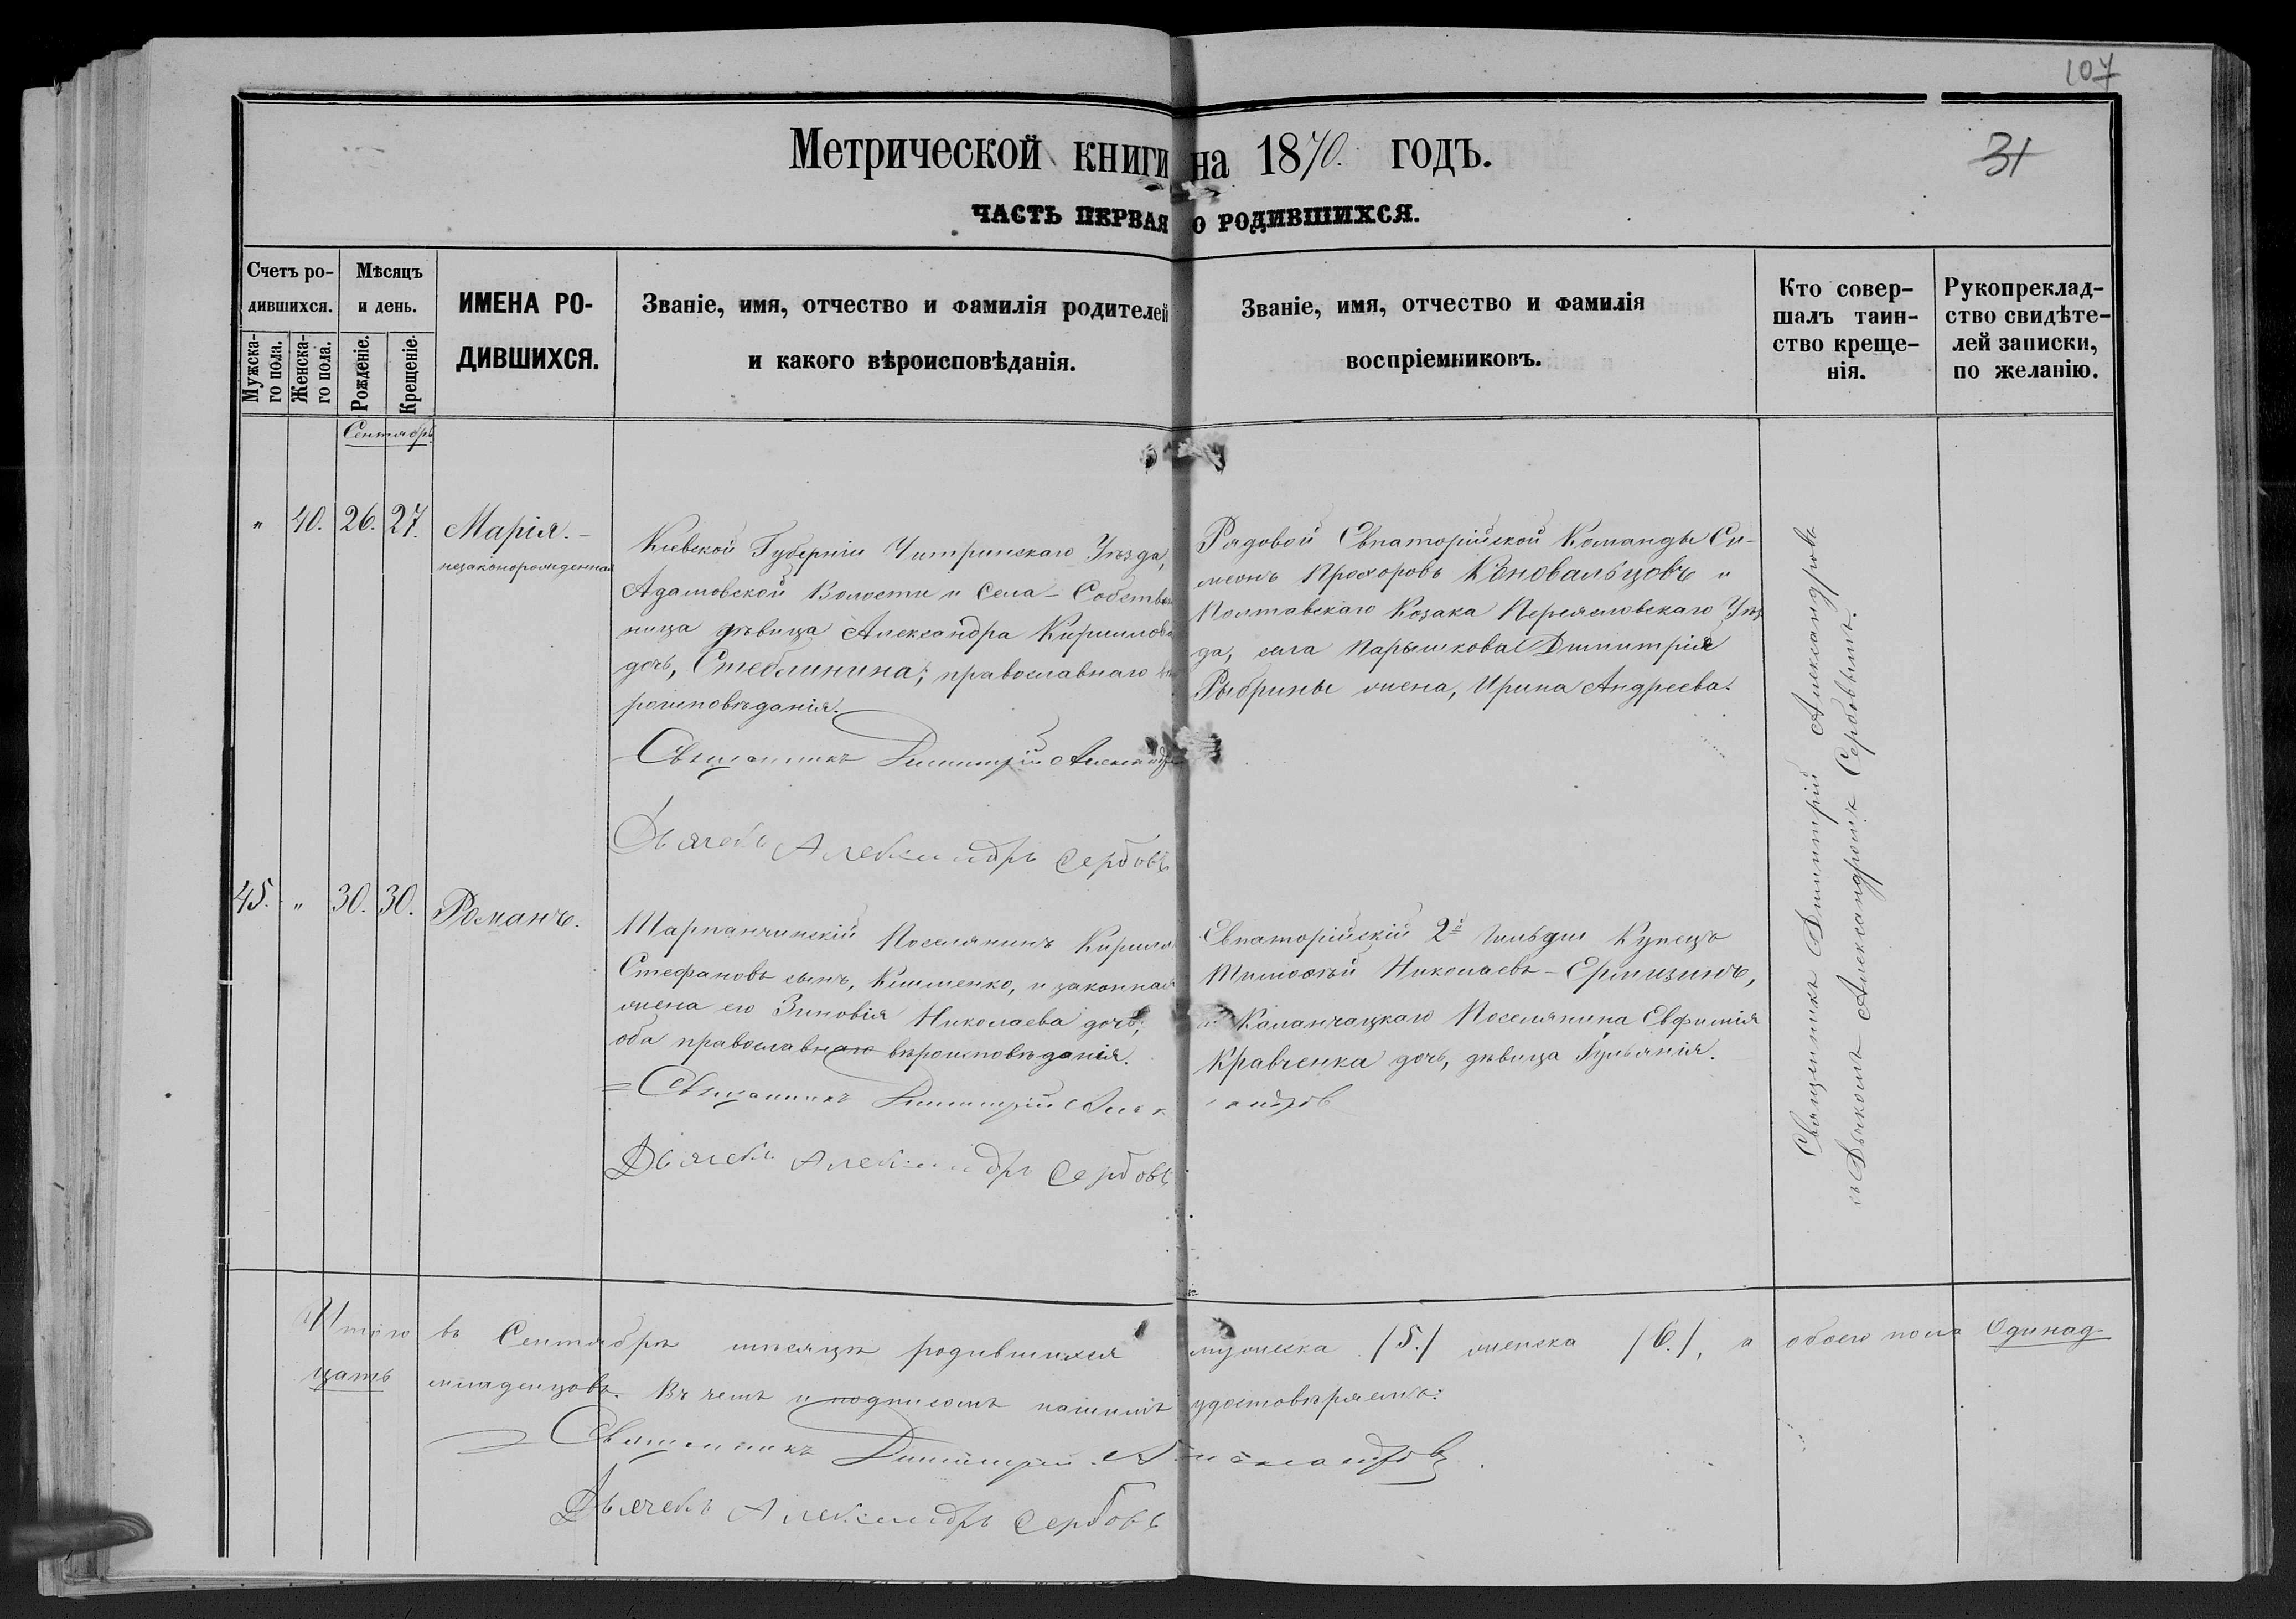 107
Метрической книги на 1870. годъ.
31
ЧАСТЬ ПЕРВАЯ О РОДИВШИХСЯ.
Счетъ ро-
дившихся.
Мужска-
го пола.
Женска-
го пола.
Мѣсяцъ
и день.
Рожденіе.
Крещеніе.
ИМЕНА РО-
ДИВШИХСЯ.
Званіе, имя, отчество и фамилія родителей
и какого вѣроисповѣданія.
Званіе, имя, отчество и фамилія
воспріемниковъ.
Кто совер-
шалъ таин-
ство креще-
нія.
Рукопреклад-
ство свидѣте-
лей записки,
по желанію.
Сентябрь
" 40. 26. 27. Марія.
незаконорожденная
Кіевской Губерніи Чигринскаго Уѣзда,
Адамовской Волости и Села - Собствен
ница дѣвица Александра Кириллова
дочь, Стеблинина; православнаго вѣ
роисповѣданія.
Священникъ Димитрій Александровъ
Дьячекъ Александръ Сербовъ
Рядовой Евпаторійской Команды Си-
меонъ Прохоровъ Коновальцовъ и
Полтавскаго Козака Переяславскаго Уѣз
да, села Парышкова Димитрія
Рыбрины жена, Ирина Андреева.
45. " 30. 30. Романъ.
Тарпанчинскій Поселянинъ Кирилл
Стефановъ сынъ, Клименко, и законная
жена его Зиновія Николаева дочь;
оба православнаго вѣроисповѣданія.
Священникъ Димитрій Александровъ
Дьячекъ Александръ Сербовъ
Евпаторійскій 2й Гильдіи Купецъ
Тимоѳей Николаевъ - Ермизинъ,
и Каланчацкаго Поселянина Евфимія
Кравченка дочь, дѣвица Гульянія.
Священникъ Димитрій Александровъ
съ Дьячкомъ Александромъ Сербовымъ.
Итого въ Сентябрѣ мѣсяцѣ родившихся мужеска /5./ женска /6./, а обоего пола Одинад-
цать младенцовъ. Въ чемъ и подписомъ нашимъ удостовѣряемъ:
Священникъ Димитрій Александровъ
Дьячекъ Александръ Сербовъ